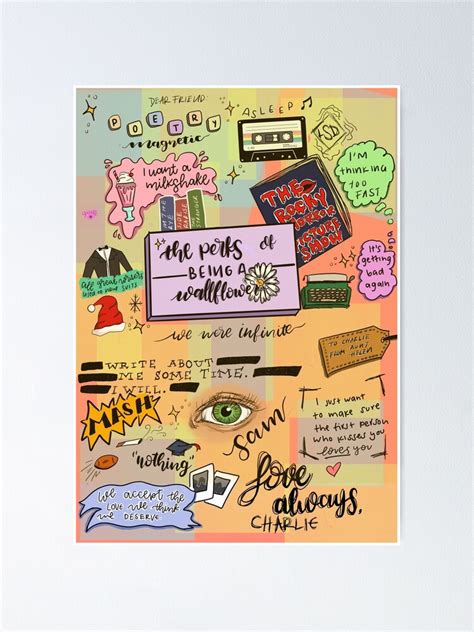 DEAR FRIEND:
POETRY
magnetic
ASLEEP
LSD
I'M
thinking
TOO
FAST
I want a
milkshake
THE
ROCKY
HORROR
PICTURE
SHOW
the perks of
BEING A
wallflower
It's
getting
bad
again
all great writers
used to wear suits
we were infinite
TO CHARLIE
FROM AUNT
HELEN
WRITE ABOUT
ME SOME TIME.
I WILL.
MASH
sam
I just want
to make sure
the first person
who kisses you
loves you
"nothing"
love
always,
CHARLIE
We accept the
LOVE we think
we DESERVE